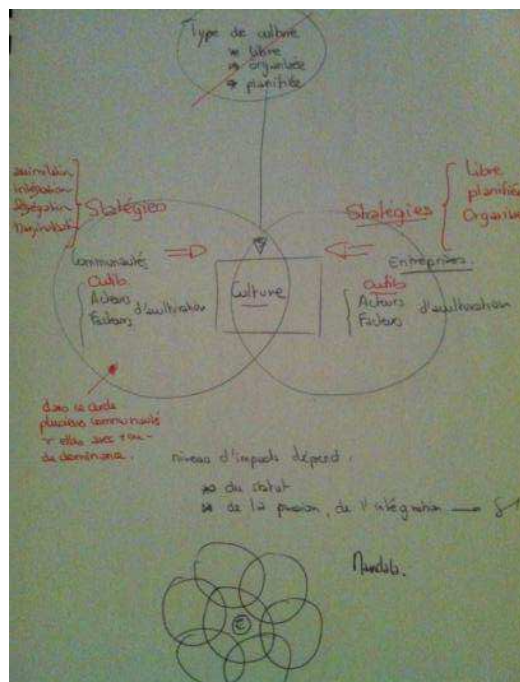 Type de culture
libre
organisée
planifiée
assimilation
intégration
ségrégation
Marginalisati
Stratégies
Stratégies
Libre
planifiée
Organisée
Communautés
Outils
Acteurs
Facteurs
d'acculturation
Culture
Entreprises.
Outils
Acteurs
Facteurs
d'acculturation
dans ce cercle
plusieurs communauté
elles avec + ou -
de dominance.
niveau d'impacts dépend :
du statut
de la pression, de l'intégration
E